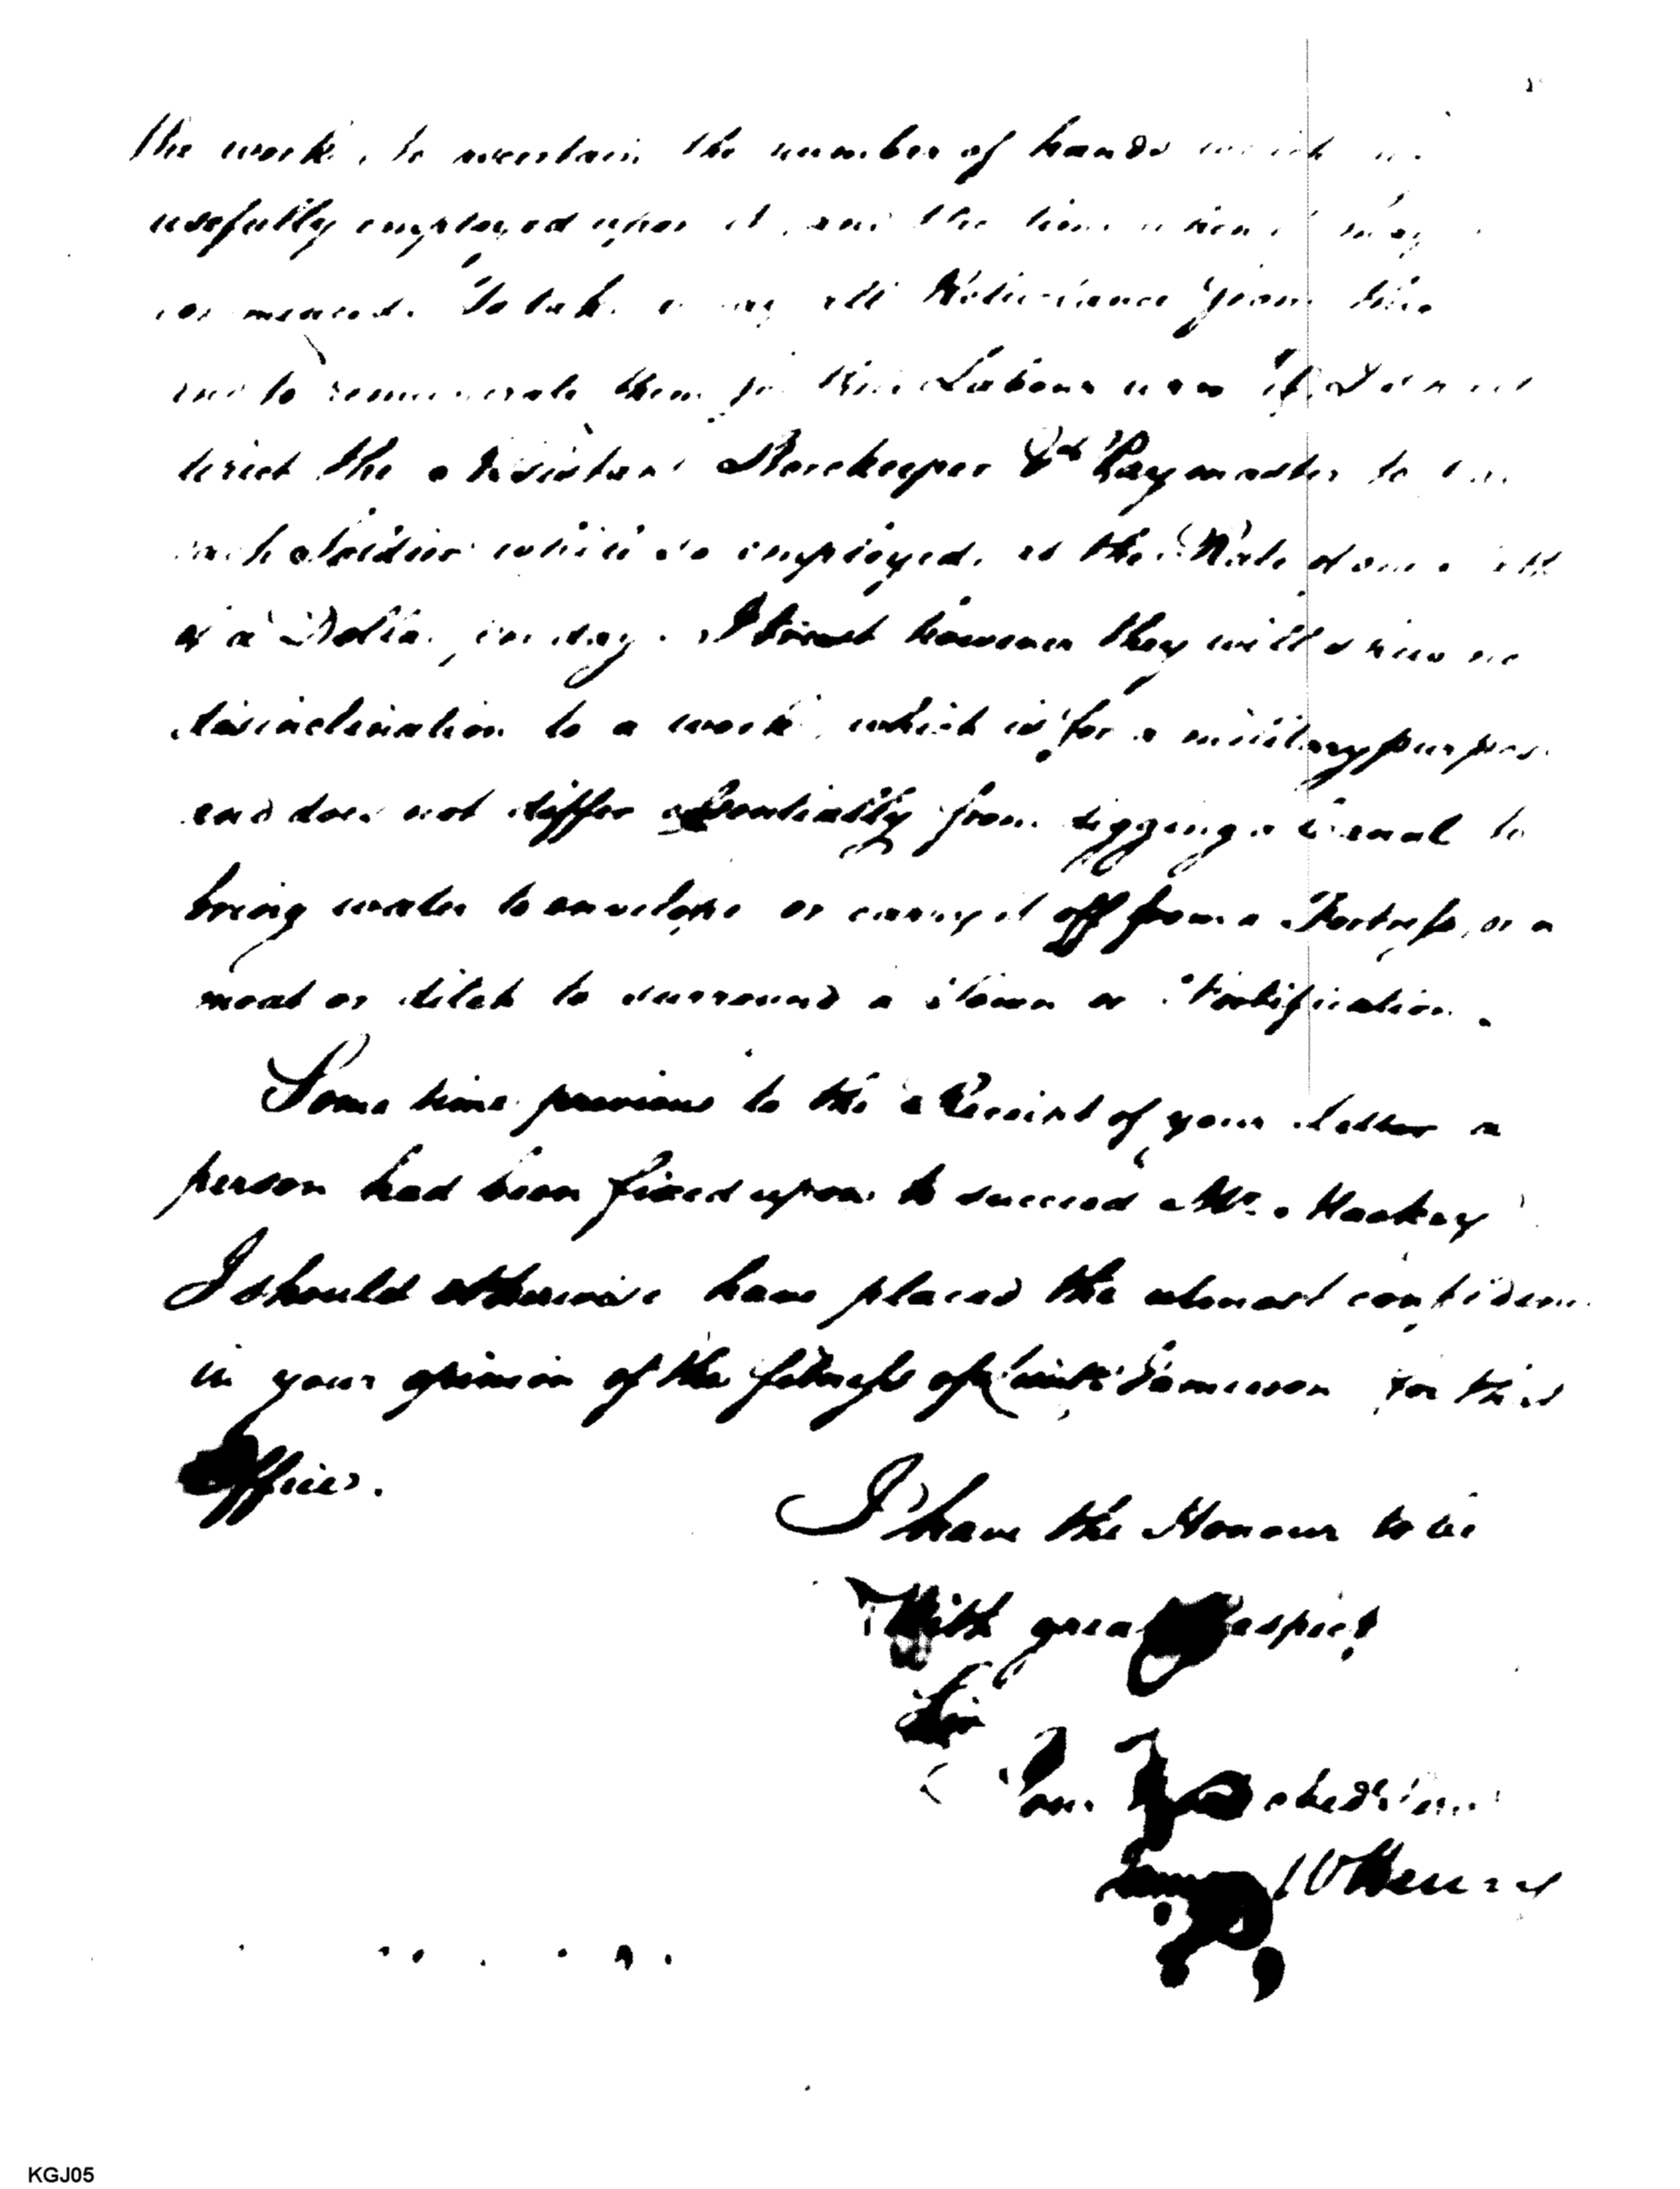 the work, to ascertain the number of hands which
usefully employed upon it, and the time when it may
commenced. To take away all Reluctance from the
and to remunerate them for their Labour
direct the Assistant Storekeeper & Paymaster to
each Soldier while so employed, at the Rate of one
of a Dollar per day. I trust however they will shew no
disinclination to a work, which is for a military purpose
and does not differ essentially from digging a Canal to
bring water to envelope or carry it off from a Fortress, or a
moat or ditch to surround a Town or Fortification.
Some time previous to the Receipt of your letter a
person had been fixed upon to succeed Mr. Mackey
I should otherwise have placed the utmost confidence
in your opinion of the fitness of for this
Office.
I have the Honour to be
With great Respect
Sir
Your
James McHenry
KGJ05